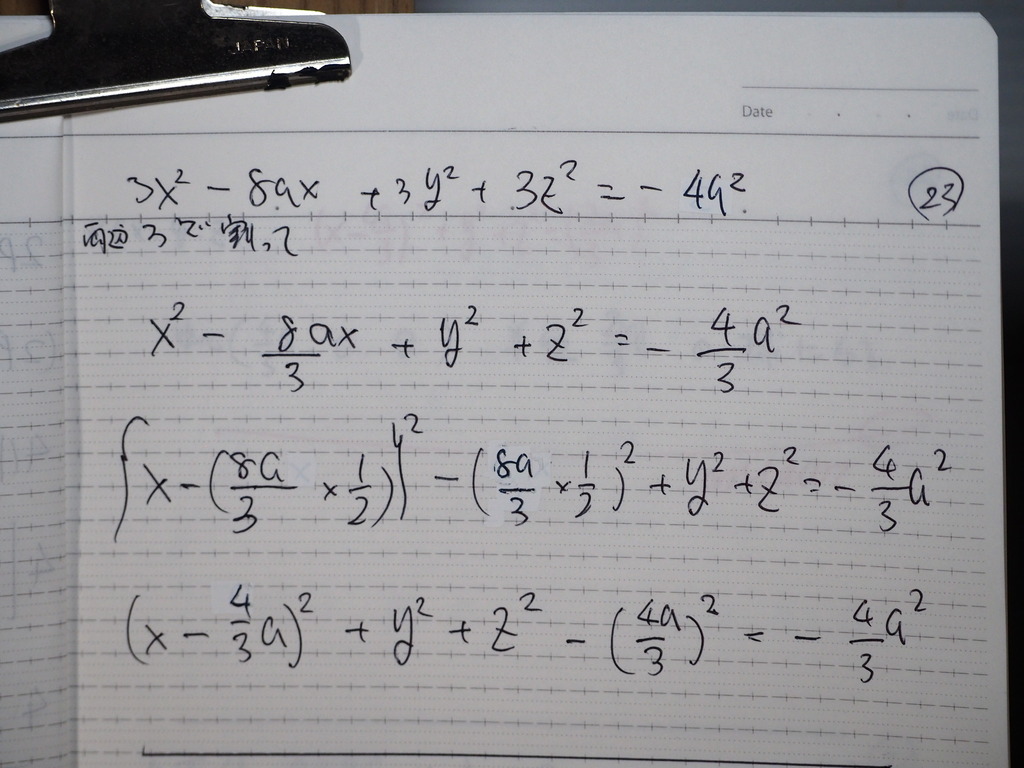 JAPAN
Date
3x² - 8ax + 3y² + 3z² = - 4a² ㉓
両辺 3 で割って
x² - 8ax/3 + y² + z² = - 4/3 a²
{x - (8a/3 × 1/2)}² - (8a/3 × 1/2)² + y² + z² = - 4/3 a²
(x - 4/3 a)² + y² + z² - (4a/3)² = - 4/3 a²